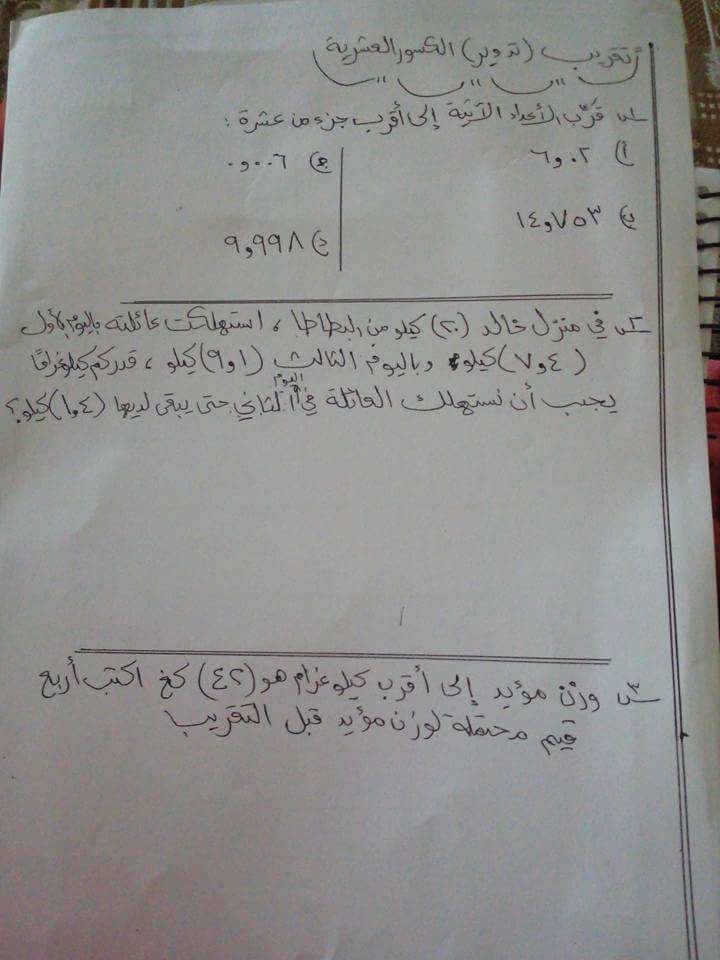 تقريب (تدوير) الكسور العشرية
س١ قرّب الأعداد الآتية إلى أقرب جزء من عشرة :
أ) ٦و٠٢
ج) ٠و٠٠٦
ب) ١٤و٧٥٣
د) ٩و٩٩٨
س٢ في منزل خالد (٢٠) كيلو من البطاطا ، استهلكت عائلته باليوم الأول
(٧و٤) كيلو وباليوم الثالث (٩و١) كيلو ، قدر كم كيلوغرامًا
يجب أن تستهلك العائلة في اليوم الثاني حتى يبقى لديها (١و٤) كيلو؟
س٣ وزن مؤيد إلى أقرب كيلو غرام هو (٤٢) كغ اكتب أربع
قيم محتملة لوزن مؤيد قبل التقريب